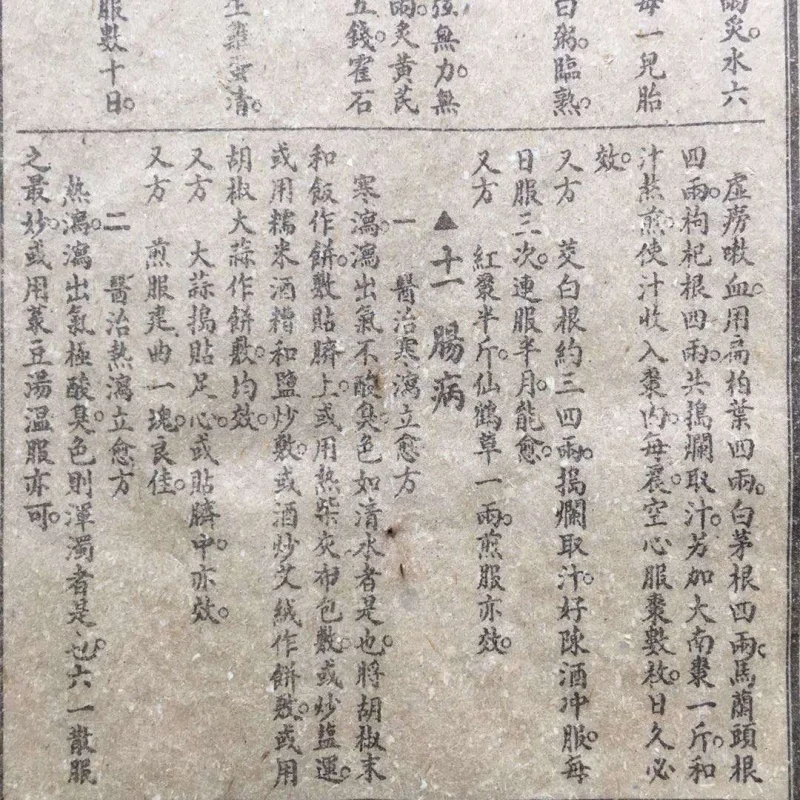 兩炙水六
每一兒胎
白粥。臨熟。
弦無力。無
兩炙黃芪
五錢霍石
生雞蛋清。
服數十日。
虛癆嗽血。用扁柏葉四兩。白茅根四兩。馬蘭頭根
四兩。枸杞根四兩。共搗爛取汁。另加大南棗一斤。和
汁熬煎。使汁收入棗內。每晨空心服棗數枚。日久必
效。
又方　茭白根約三四兩。搗爛取汁。好陳酒冲服。每
日服三次。連服半月。能愈。
又方　紅棗半斤。仙鶴草一兩。煎服亦效。
▲十一　腸病
一　醫治寒瀉立愈方
寒瀉。瀉出氣不酸臭。色如清水者是也。將胡椒末
和飯作餅。敷貼臍上。或用熱柴灰布包敷。或炒鹽運。
或用糯米酒糟和鹽炒敷。或酒炒艾絨作餅敷。或用
胡椒大蒜作餅敷。均效。
又方　大蒜搗貼足心。或貼臍中。亦效。
又方　煎服建曲一塊。良佳。
二　醫治熱瀉立愈方
熱瀉。瀉出氣極酸臭。色則渾濁者是也。六一散服
之最妙。或用菉豆湯溫服亦可。